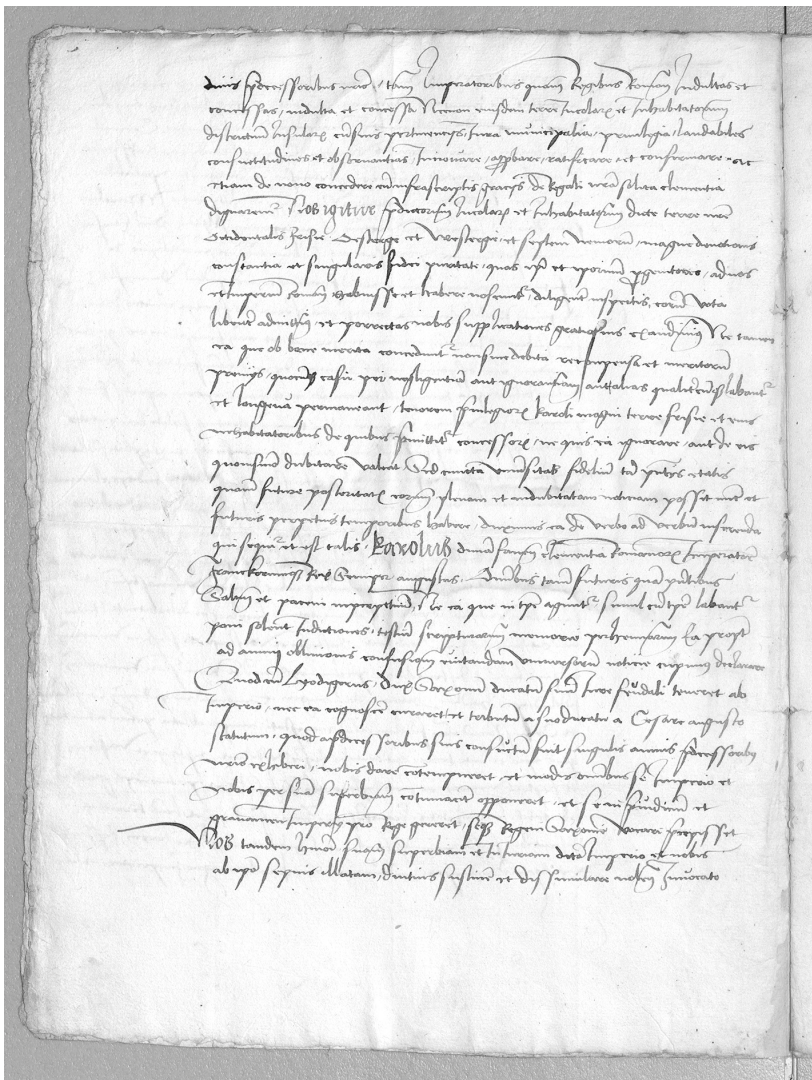 diuis p̄decessoribus nr̄is, tam Imperatoribus quam Regibus Roman̄ Indultas et
concessas, indulta et concessa Necnon eiusdem terre Incolarꝫ et Inhabitatorum
districtuum Insularꝫ pertinentijs, iura municipalia, priuilegia, laudabiles
consuetudines et obseruantias, Innouare, app̄bare, ratificare, et confirmare, ac
etiam de nouo concedere infrascriptis gracijs de Regali nr̄a solita clementia
dignaremur Nos igitur p̄dictorum Incolarꝫ et Inhabitatorum dicte terre nr̄e
Occidentalis frisie Oestergo et Westergo, et septem, magne deuotionis
constantia et singularis fidei puritati, quas ip̄i et ip̄orum p̄genitores, ad nos
et Imperium Roman̄ habuisse et habere noscuntur, diligenter inspectis, eorum vota
libenter admittim̄ et porrectas nobis supplicationes gratiosius exaudiuimus Ne tamen
ea que ob bene merita conceduntur non sine debita recompensa et meritorum
premijs, casu per negligentiam aut ignorantiam aut alias labantr̄
et longeua permaneant, tenorem p̄uilegiorꝫ Karoli magni terre frisie et eius
inhabitatoribus de quibus p̄mittitr̄ concessorꝫ, ne quis ea ignorare, aut de eis
quomodo dubitare valeat Sed cuncta vniuersitas fidelium tam p̄ntis etatis
quam future posteritatis eorum plenam et indubitatam noticiam possit nunc et
futuris perpetuis temporibus habere, duximus ea de verbo ad verbum inserenda
qui sequitr̄ et est talis, Karolus diuina fauen̄ clementia Romanorꝫ Imperator
Francorumqꝫ Rex Semper augustus Omnibus tam futuris quam p̄ntibus
Salutem et pacem imperpetuum, Ne ea que in tp̄e aguntr̄ simul cum tp̄e labantr̄
poni solent Indutiones, testium scripturarum memoria Ea propt̄
ad animi obliuionis confusionem euitandam vniuersorum noticie cupimus declarare
Quod cum, Dux Saxonum ducatum suum Iure feudali teneret ab
Imperio, nec ea cognoscere curaret et tributum a suo ducatu a Cesare augusto
statutum, quod a p̄decessoribus suis consuetum fuit singulis annis p̄decessoribꝫ
nr̄is exhiberi, nobis dare contempneret, et modis omnibus se Imperio et
nobis per suam superbiam contumaciter opponeret, et se in p̄iudicium et
grauamen Imperij pro Rege gereret, seqꝫ Regem Saxonie vocare precepisset
Nos tandem suam superbiam et Iniuriam dicto Imperio et nobis
ab ip̄o sepius illatam, diutius sustinere et dissimulare nolentes Inuocato